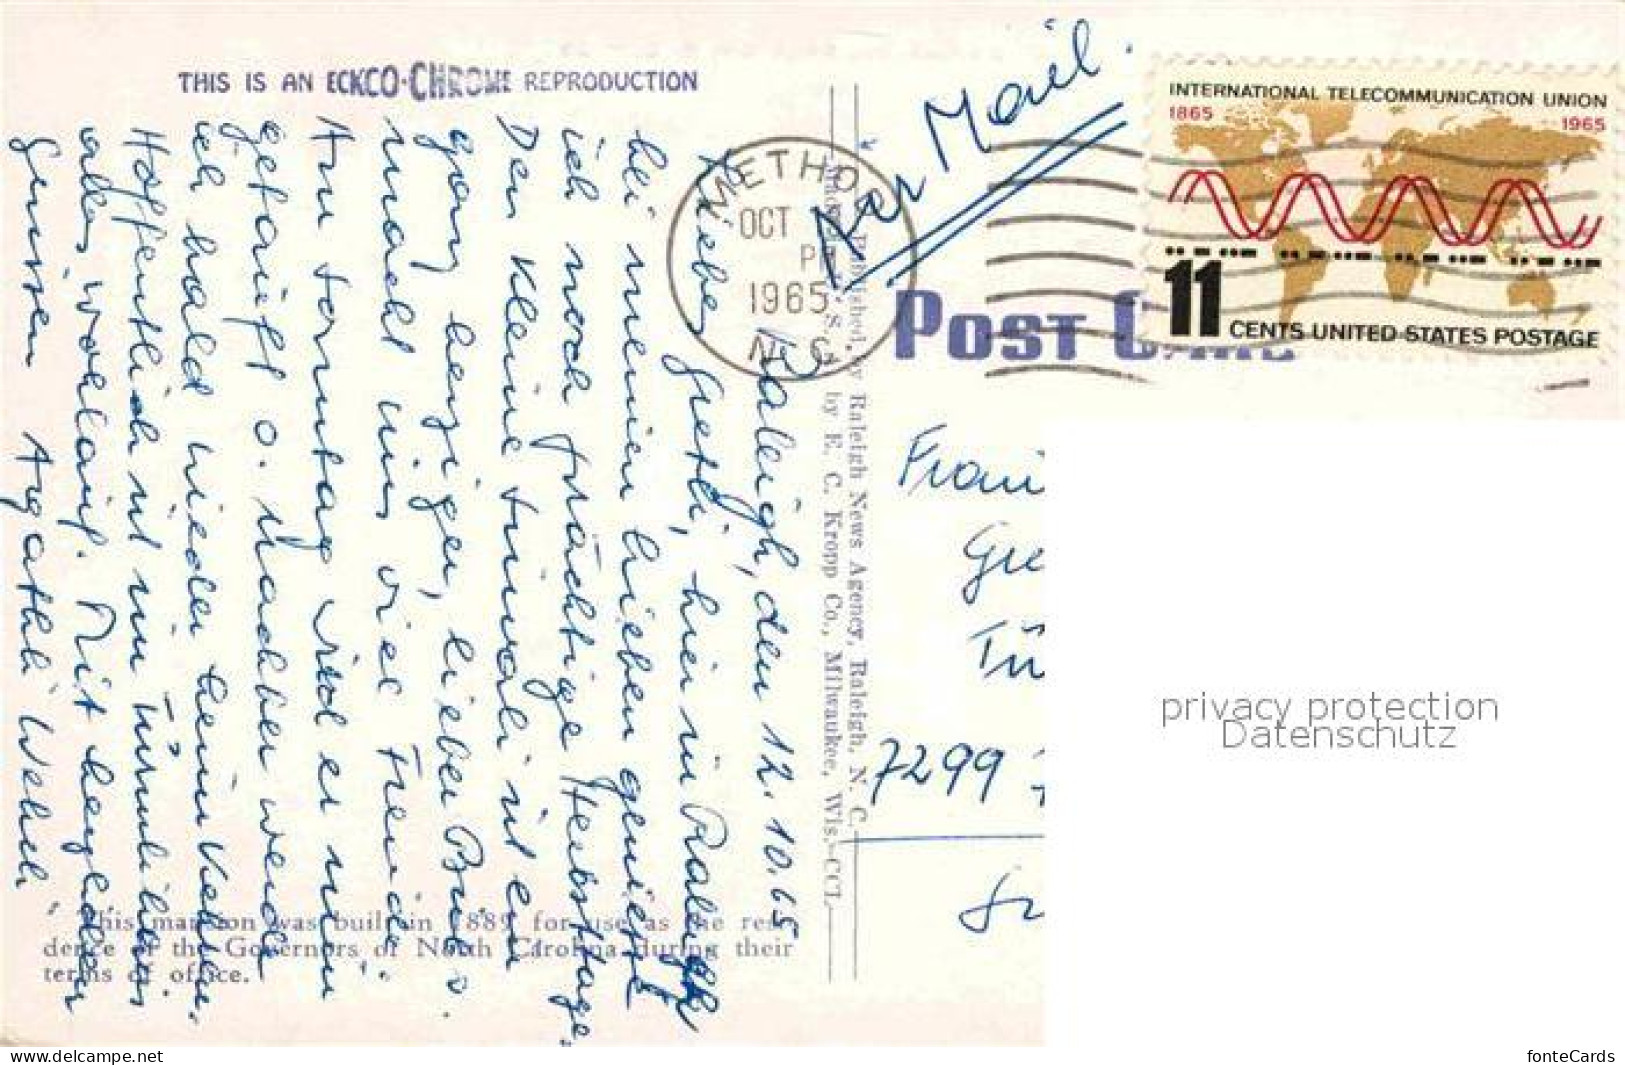 THIS IS AN ECKCO-CHROME REPRODUCTION
Air Mail.
INTERNATIONAL TELECOMMUNICATION UNION
1865
1965
11 CENTS UNITED STATES POSTAGE
METHOD
OCT
PM
1965
N. C.
POST CARD
Raleigh, den 12. 10. 65
Liebes Gretli, hier in Raleigh
bei meinen Lieben genieße
ich noch prächtige Herbsttage.
Der kleine Einwohi ist ein
ganz herziger, lieber Bub.
macht uns viel Freude.
Am Sonntag wird er nun
getauft o. nachher werde
ich bald wieder heimkehren.
Hoffentlich ist im
alles wohlauf. Mit herzlichen
Grüssen Agathli Wehrli
Published by Raleigh News Agency, Raleigh, N. C.
by E. C. Kropp Co., Milwaukee, Wis.—CCL
Frau
Gre
Tü
7299
This mansion was built in 1889 for use as the resi-
dence of the Governors of North Carolina during their
terms of office.
privacy protection
Datenschutz
www.delcampe.net
fonteCards